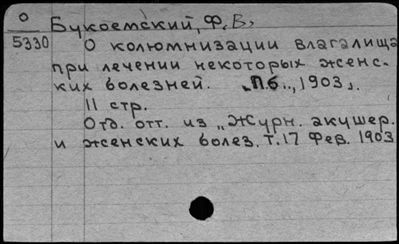 О
5330
Букоемский, Ф. В,
О колюмнизации влагалища
при лечении некоторых женс-
ких болезней. „П.б.., 1903".
11 стр.
Отд. отт. из „Журн. акушер.
и женских болез. т. 17 Фев. 1903